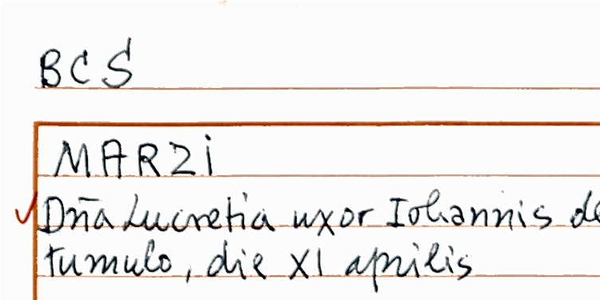 BCS
MARZi
Dña Lucretia uxor Iohannis de
tumulo, die XI aprilis